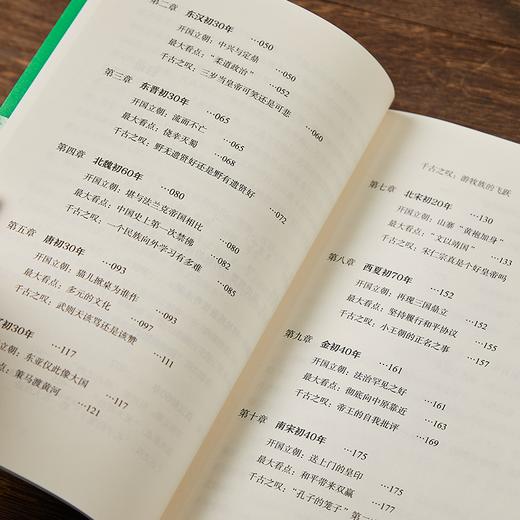 第二章 东汉初30年 …050
开国立朝：中兴与定鼎 …050
最大看点：“柔道政治” …052
千古之叹：三岁当皇帝可笑还是可悲 …060
第三章 东晋初30年 …065
开国立朝：流而不亡 …065
最大看点：侥幸灭蜀 …068
千古之叹：野无遗贤好还是野有遗贤好 …072
第四章 北魏初60年 …080
开国立朝：堪与法兰克帝国相比 …080
最大看点：中国史上第一次禁佛 …082
千古之叹：一个民族向外学习有多难 …085
第五章 唐初30年 …093
开国立朝：猫儿掀桌为谁作 …093
最大看点：多元的文化 …097
千古之叹：武则天该骂还是该赞 …111
初30年 …117
国立朝：东亚仅此像大国 …117
点：策马渡黄河 …121
千古之叹：游牧族的飞跃
第七章 北宋初20年 …130
开国立朝：山寨“黄袍加身” …130
最大看点：“文以靖国” …133
千古之叹：宋仁宗真是个好皇帝吗
第八章 西夏初70年 …152
开国立朝：再现三国鼎立 …152
最大看点：坚持履行和平协议 …155
千古之叹：小王朝的正名之事 …157
第九章 金初40年 …161
开国立朝：法治罕见之好 …161
最大看点：彻底向中原靠近 …163
千古之叹：帝王的自我批评 …169
第十章 南宋初40年 …175
开国立朝：送上门的皇印 …175
最大看点：和平带来双赢 …177
千古之叹：“孔子的笼子”第一